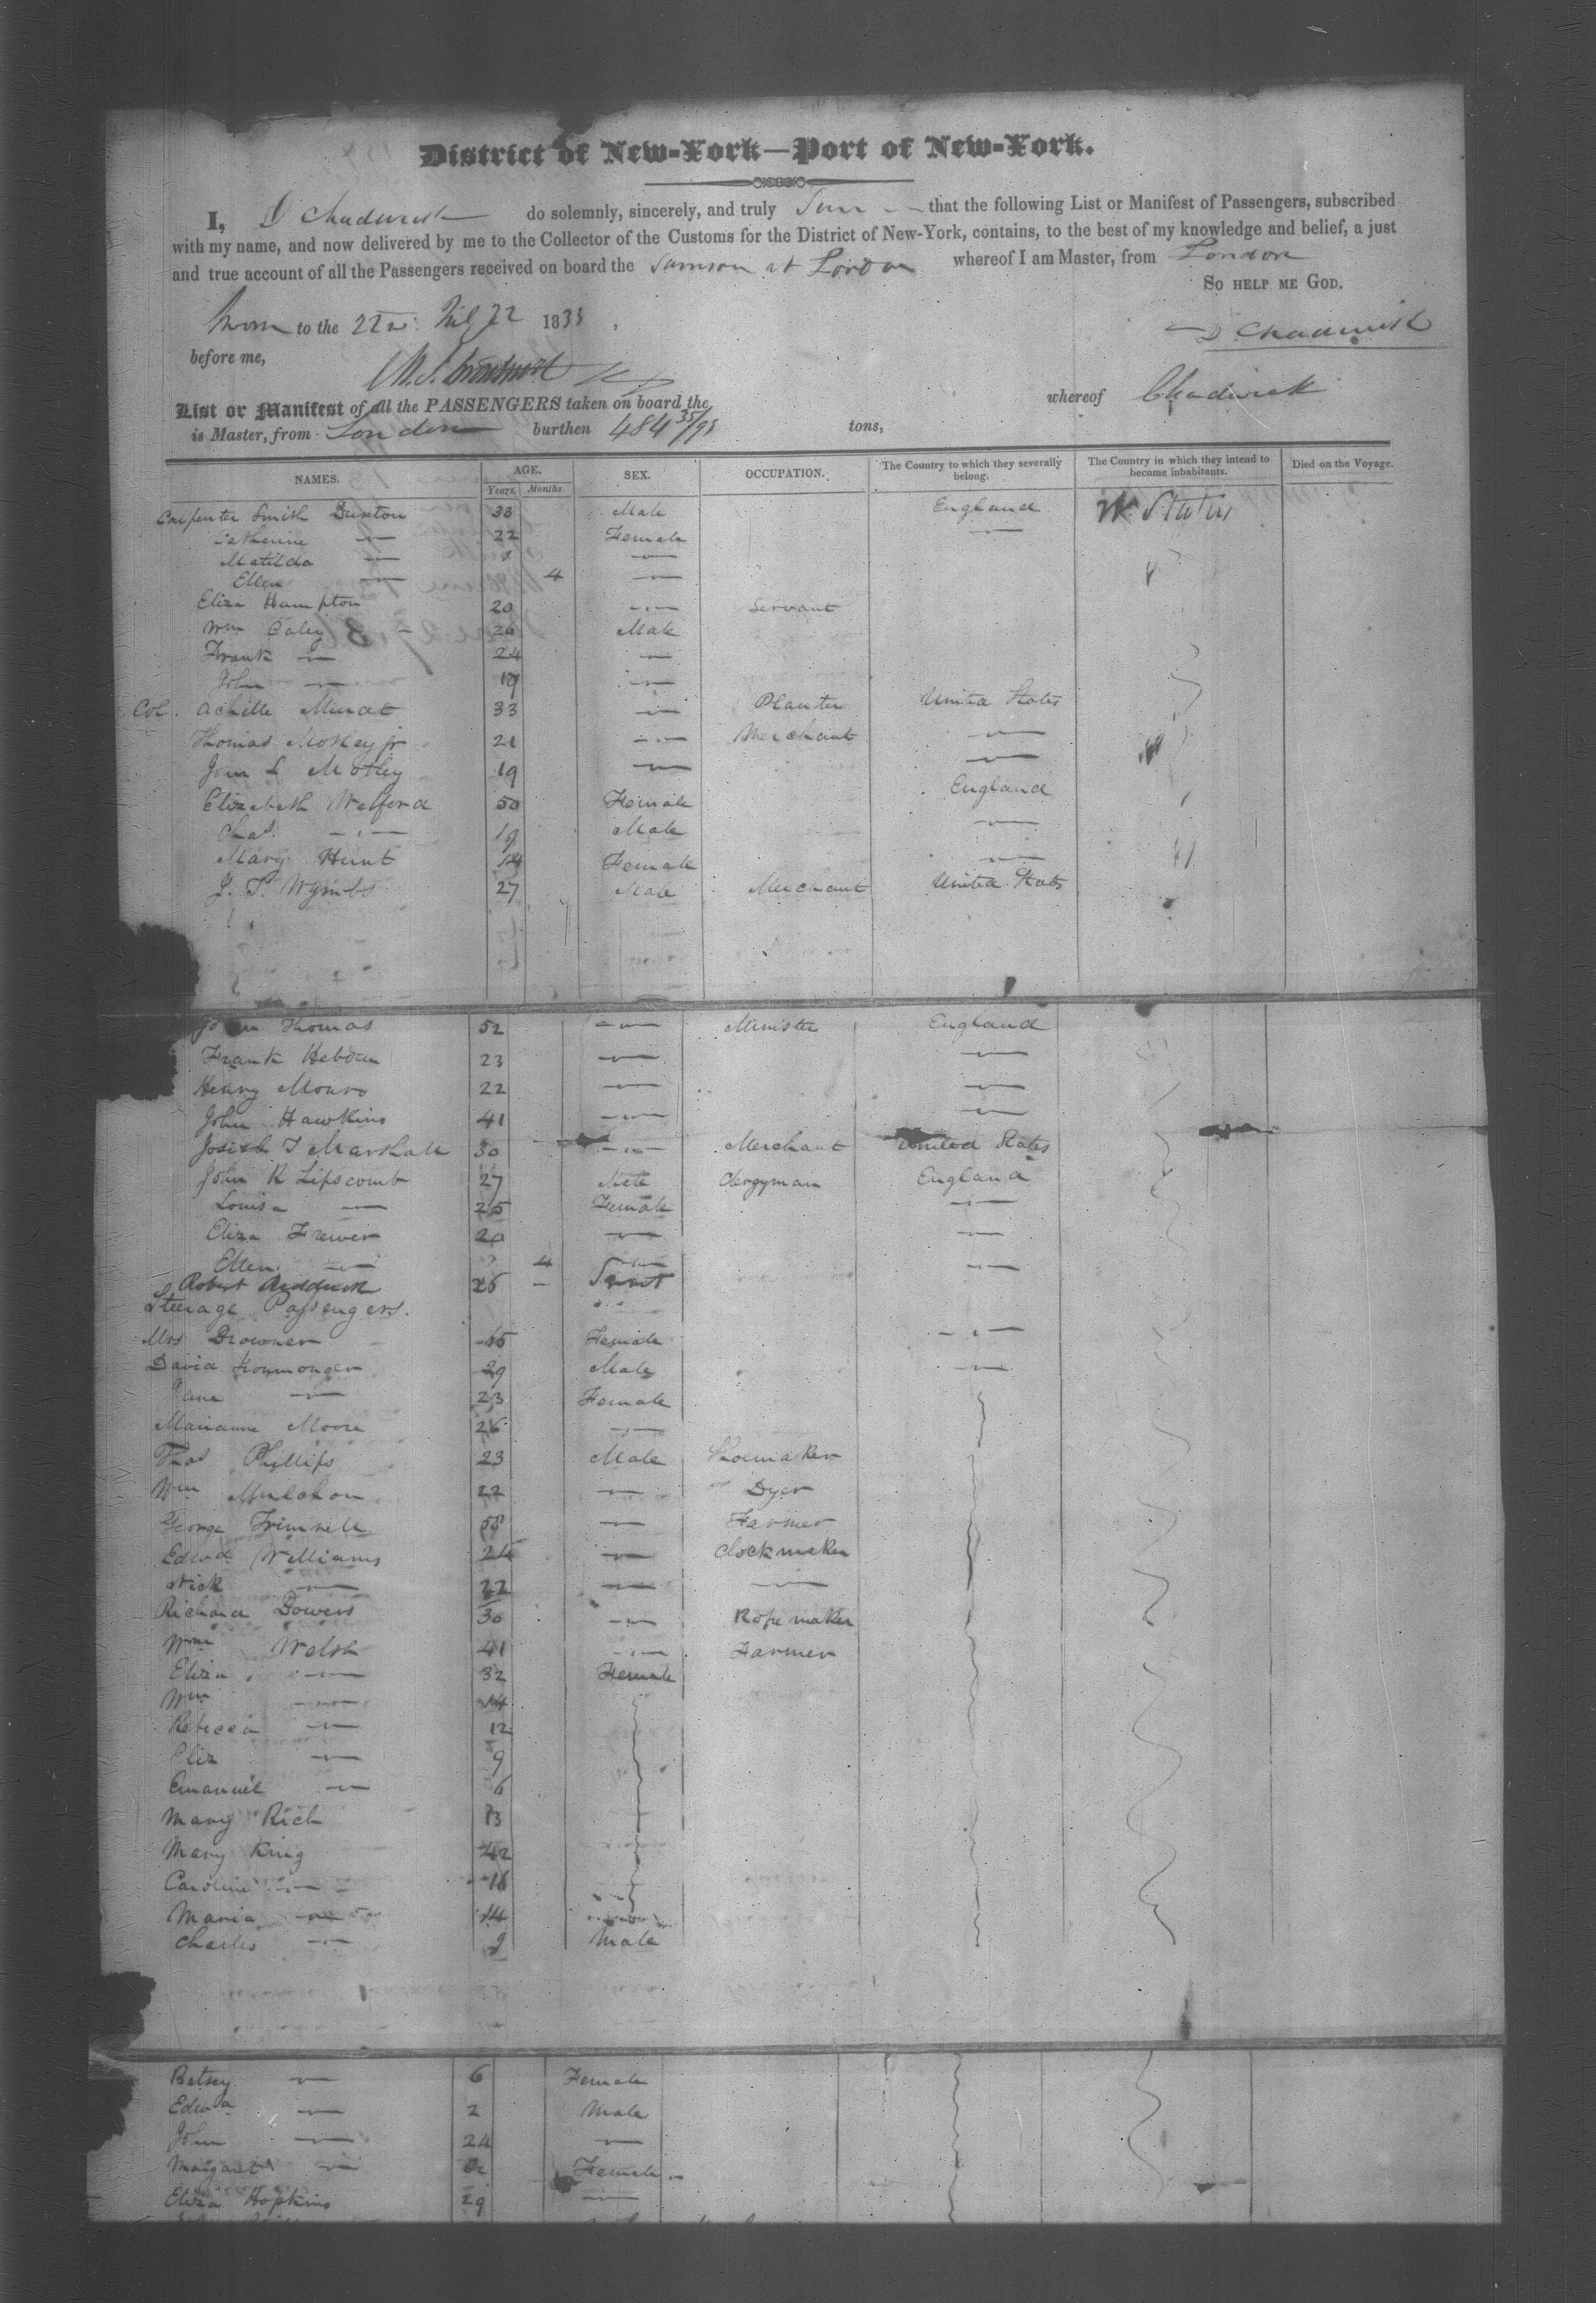 District of New-York—Port of New-York.
I, D Chadwick do solemnly, sincerely, and truly that the following List or Manifest of Passengers, subscribed
with my name, and now delivered by me to the Collector of the Customs for the District of New-York, contains, to the best of my knowledge and belief, a just
and true account of all the Passengers received on board the Samson at London whereof I am Master, from London
So help me God.
Sworn to the 22 1833
D Chadwick
before me,
List or Manifest of all the PASSENGERS taken on board the whereof Chadwick
is Master, from London burthen 484 35/95 tons,
NAMES. AGE. Years. Months. SEX. OCCUPATION. The Country to which they severally belong. The Country in which they intend to become inhabitants. Died on the Voyage.
Carpenter Smith Buxton 33 Male England U States
Catherine — 22 Female —
Matilda — —
Ellen — 4 —
Eliza Hampton 20 — Servant
Wm Caley 26 Male
Frank — 24 —
John — 19 —
Col. Achille Murat 33 — Planter United States
Thomas Motley jr 21 — Merchant —
John L Motley 19 — —
Elizabeth Welford 50 Female England
Chas. — 19 Male —
Mary Hunt 14 Female —
J. P. Wymbs 27 Male Merchant United States
John Thomas 52 — Minister England
Frank Hebdon 23 — —
Henry Monro 22 — —
John Hawkins 41 — —
Josiah T Marshall 30 — Merchant United States
John R Lipscomb 27 Male Clergyman England
Louisa — 25 Female —
Eliza Frewer 20 — —
Ellen — 4 — —
Robert 26 —
Steerage Passengers.
Mrs Drowner Female —
David Ironmonger 29 Male —
Jane — 23 Female
Marianne Moore 26 —
Thos Phillips 23 Male Shoemaker
Wm 22 — Dyer
George Trimnell — Farmer
Edwd Williams — Clockmaker
— 22 — —
Richard Bowers 30 — Rope maker
Wm Welsh 41 — Farmer
Eliza — 32 Female
Wm — 14
Rebecca — 12
Eliz — 9
Emanuel — 6
Mary Rich 13
Mary King 42
Caroline — 16
Maria — 14
Charles — 9 Male
Betsey — 6 Female
Edwd — 2 Male
John — 24 —
Margaret — Female
Eliza Hopkins 29 —